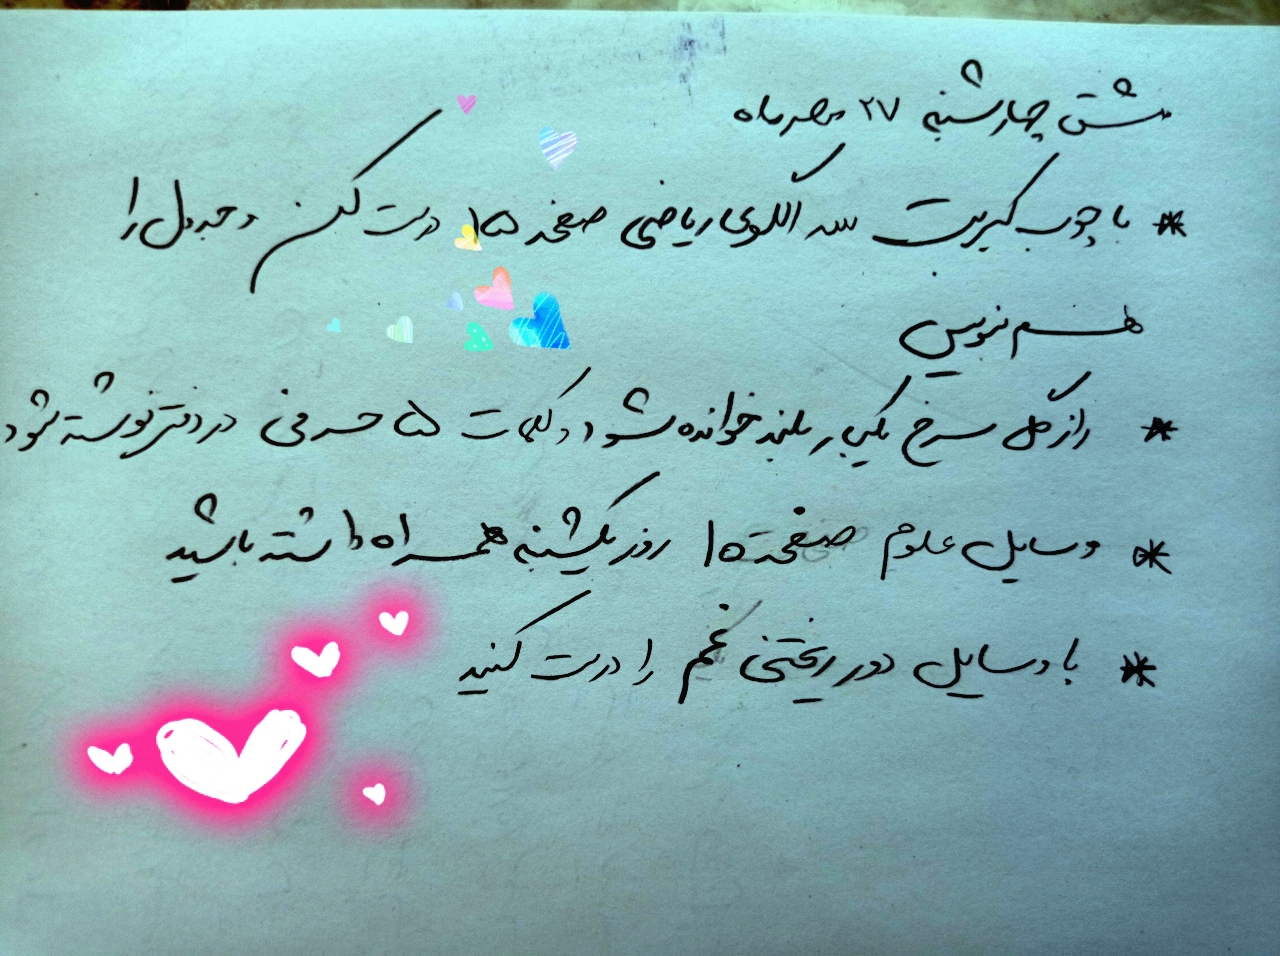 مشق چهارشنبه ۲۷ مهر ماه
* با چوب کبریت سه الگوی ریاضی صفحه ۱۵ درست کن و جدول را
هم بنویس
* راز گل سرخ یکبار بلند خوانده شود و کلمات ۵ حرفی در دفتر نوشته شود
* وسایل علوم صفحه ۱۵ روز یکشنبه همراه داشته باشید
* با وسایل دور ریختنی را درست کنید